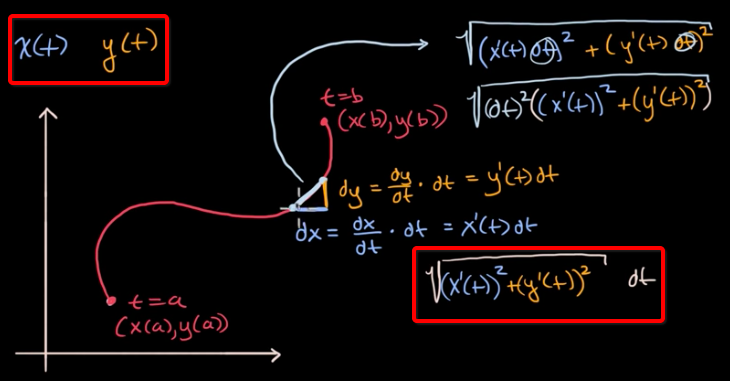 x(t) y(t)
√((x'(t) dt)² + (y'(t) dt)²)
√((dt)²((x'(t))² + (y'(t))²))
t=b
(x(b), y(b))
dy = dy/dt · dt = y'(t) dt
dx = dx/dt · dt = x'(t) dt
√((x'(t))² + (y'(t))²) dt
t=a
(x(a), y(a))